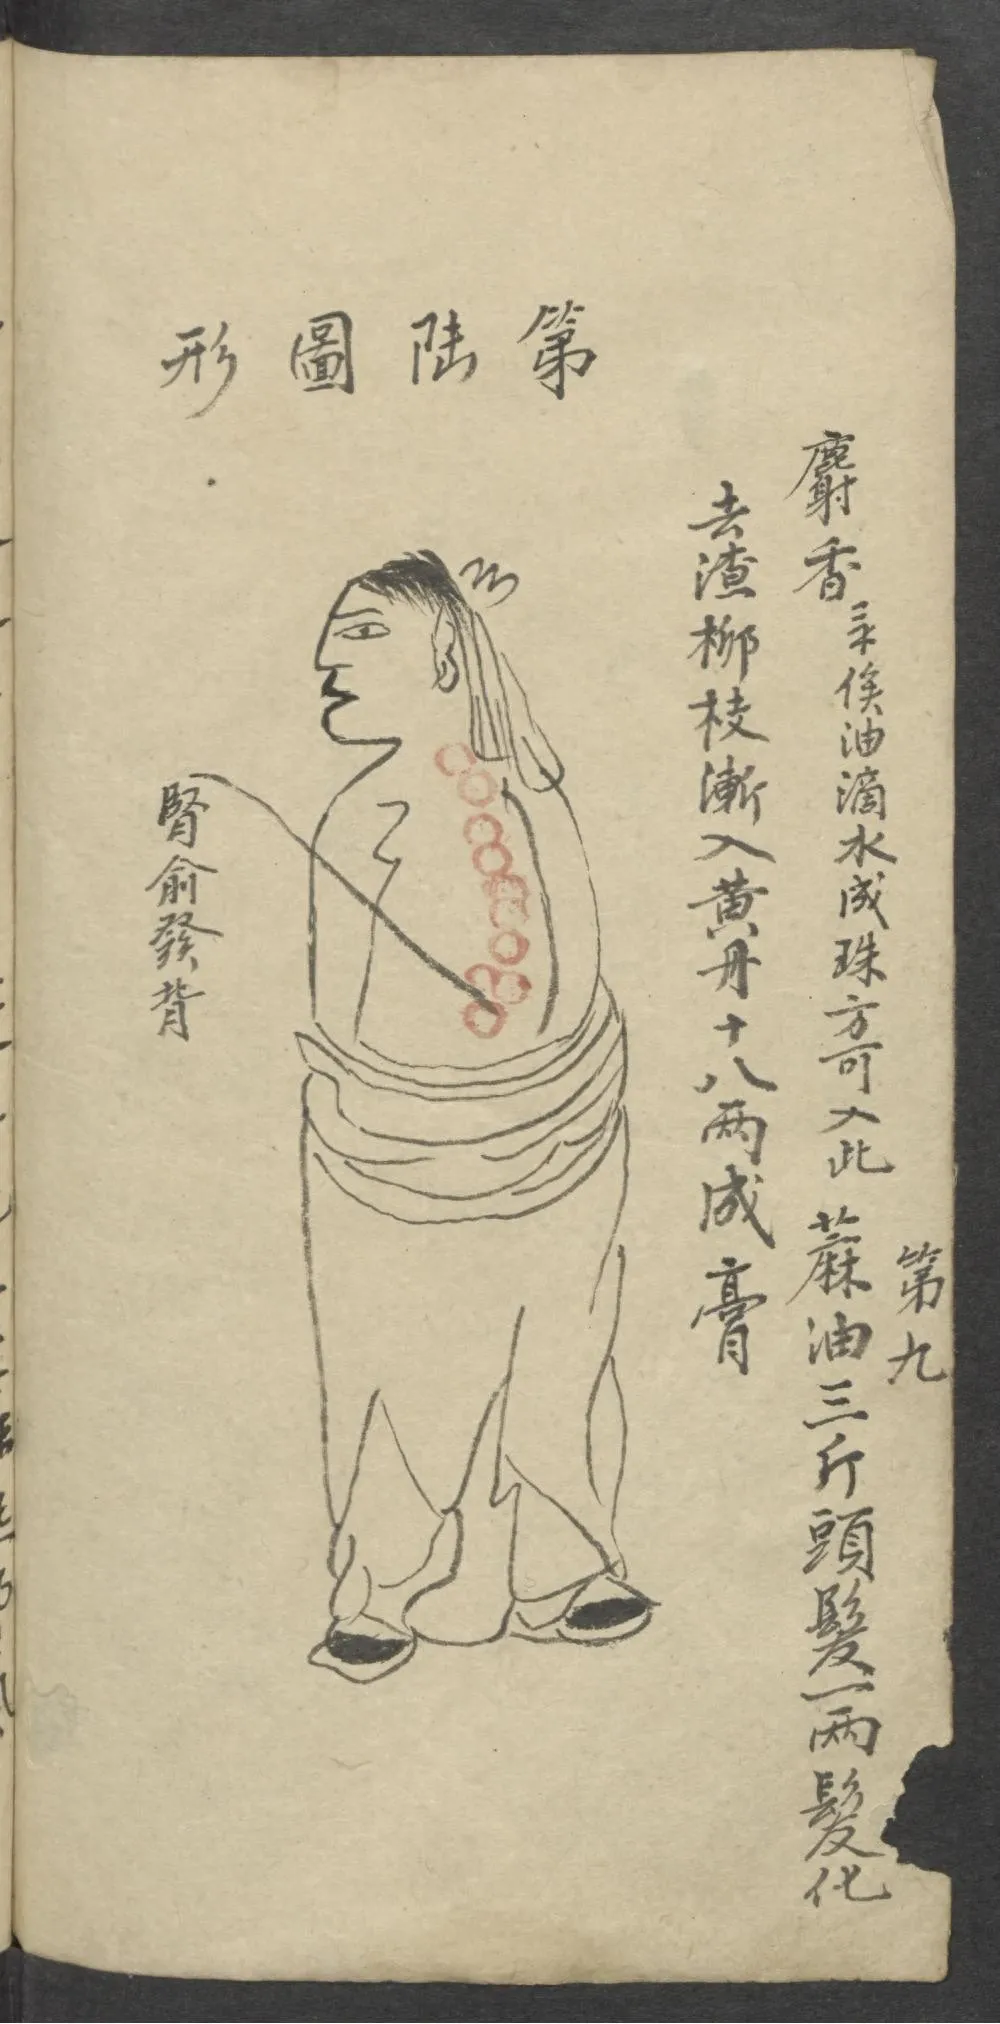 第九
麝香三分俟油滴水成珠方可入此蔴油三斤頭髮一两髮化
去渣柳枝漸入黄丹十八两成膏
第陆圖形
腎俞發背